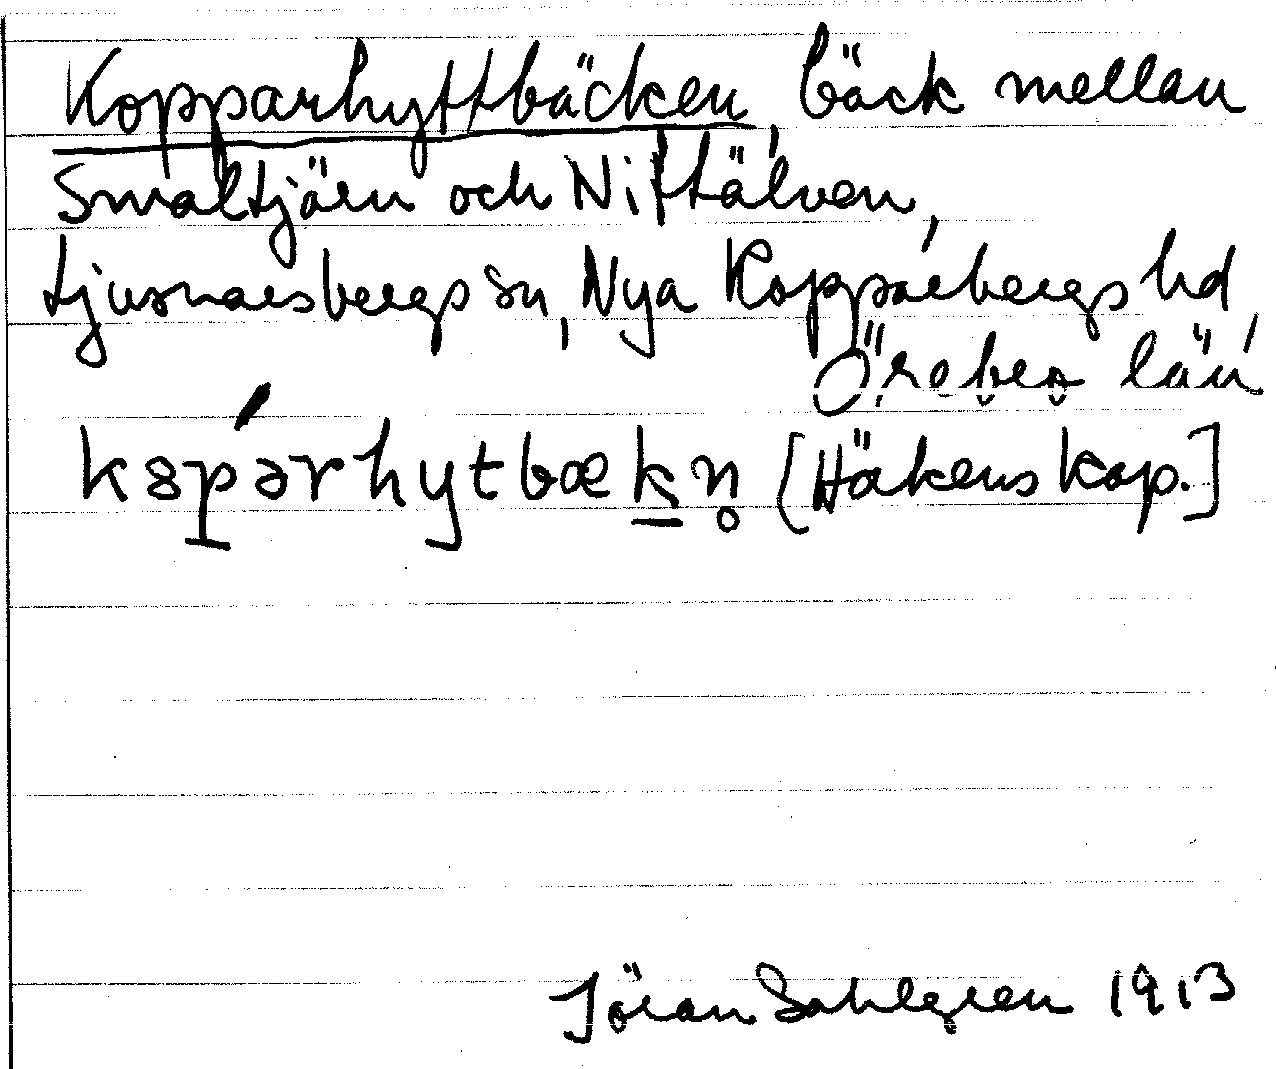 Kopparhyttbäcken, bäck mellan
Smaltjärn och Nittälven,
Ljusnarsbergs sn, Nya Kopparbergs hd,
Örebro län
kȣpərhytbækn̥ [Häkens Kop.]
Jöran Sahlgren 1913